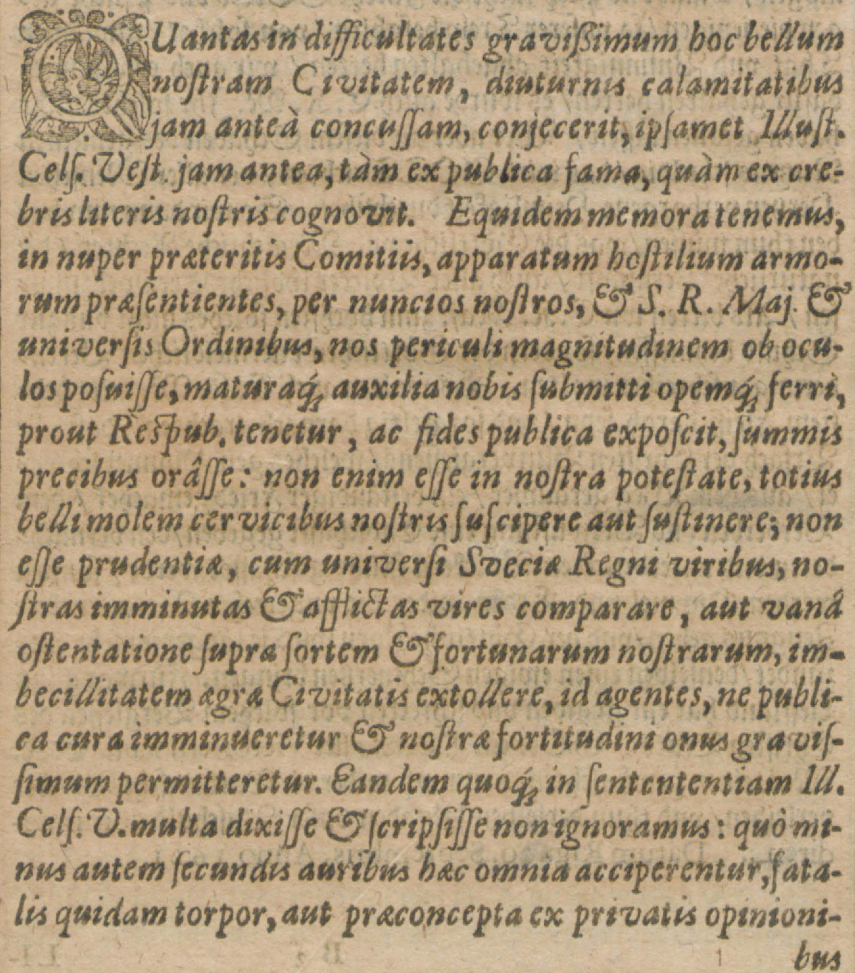 QUantas in difficultates gravißimum hoc bellum
noſtram Civitatem, diuturnis calamitatibus
jam anteà concuſſam, conjecerit, ipſamet Illuſt.
Celſ. Veſt. jam antea, tàm ex publica fama, quàm ex cre-
bris literis noſtris cognovit. Equidem memora tenemus,
in nuper præteritis Comitiis, apparatum hoſtilium armo-
rum præſentientes, per nuncios noſtros, & S. R. Maj. &
univerſis Ordinibus, nos periculi magnitudinem ob ocu-
los poſuiſſe, maturaq́; auxilia nobis ſubmitti opemq́; ferri,
prout Reſpub. tenetur, ac fides publica expoſcit, ſummis
precibus orâſſe: non enim eſſe in noſtra poteſtate, totius
belli molem cervicibus noſtris ſuſcipere aut ſuſtinere; non
eſſe prudentiæ, cum univerſi Sveciæ Regni viribus, no-
ſtras imminutas & afflictas vires comparare, aut vanâ
oſtentatione ſupra ſortem & fortunarum noſtrarum, im-
becillitatem ægræ Civitatis extollere, id agentes, ne publi-
ca cura imminueretur & noſtræ fortitudini onus graviſ-
ſimum permitteretur. Eandem quoq́; in ſentententiam Ill.
Celſ. V. multa dixiſſe & ſcripſiſſe non ignoramus: quò mi-
nus autem ſecundis auribus hæc omnia acciperentur, fata-
lis quidam torpor, aut præconcepta ex privatis opinioni-
bus